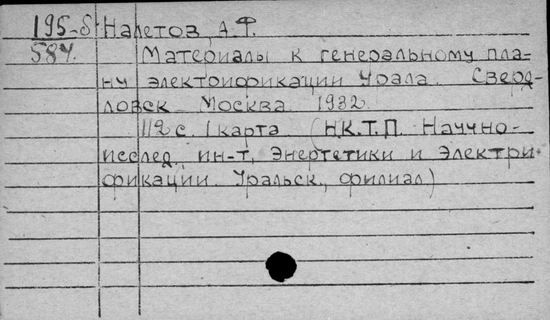 195-б Налетов А.Ф.
584. Материалы к генеральному пла-
ну электрификации Урала. Сверд-
ловск Москва 1932
112 с. 1 карта (Н.К.Т.П. Научно-
исслед. ин-т, Энергетики и Электри-
фикации. Уральск., филиал)